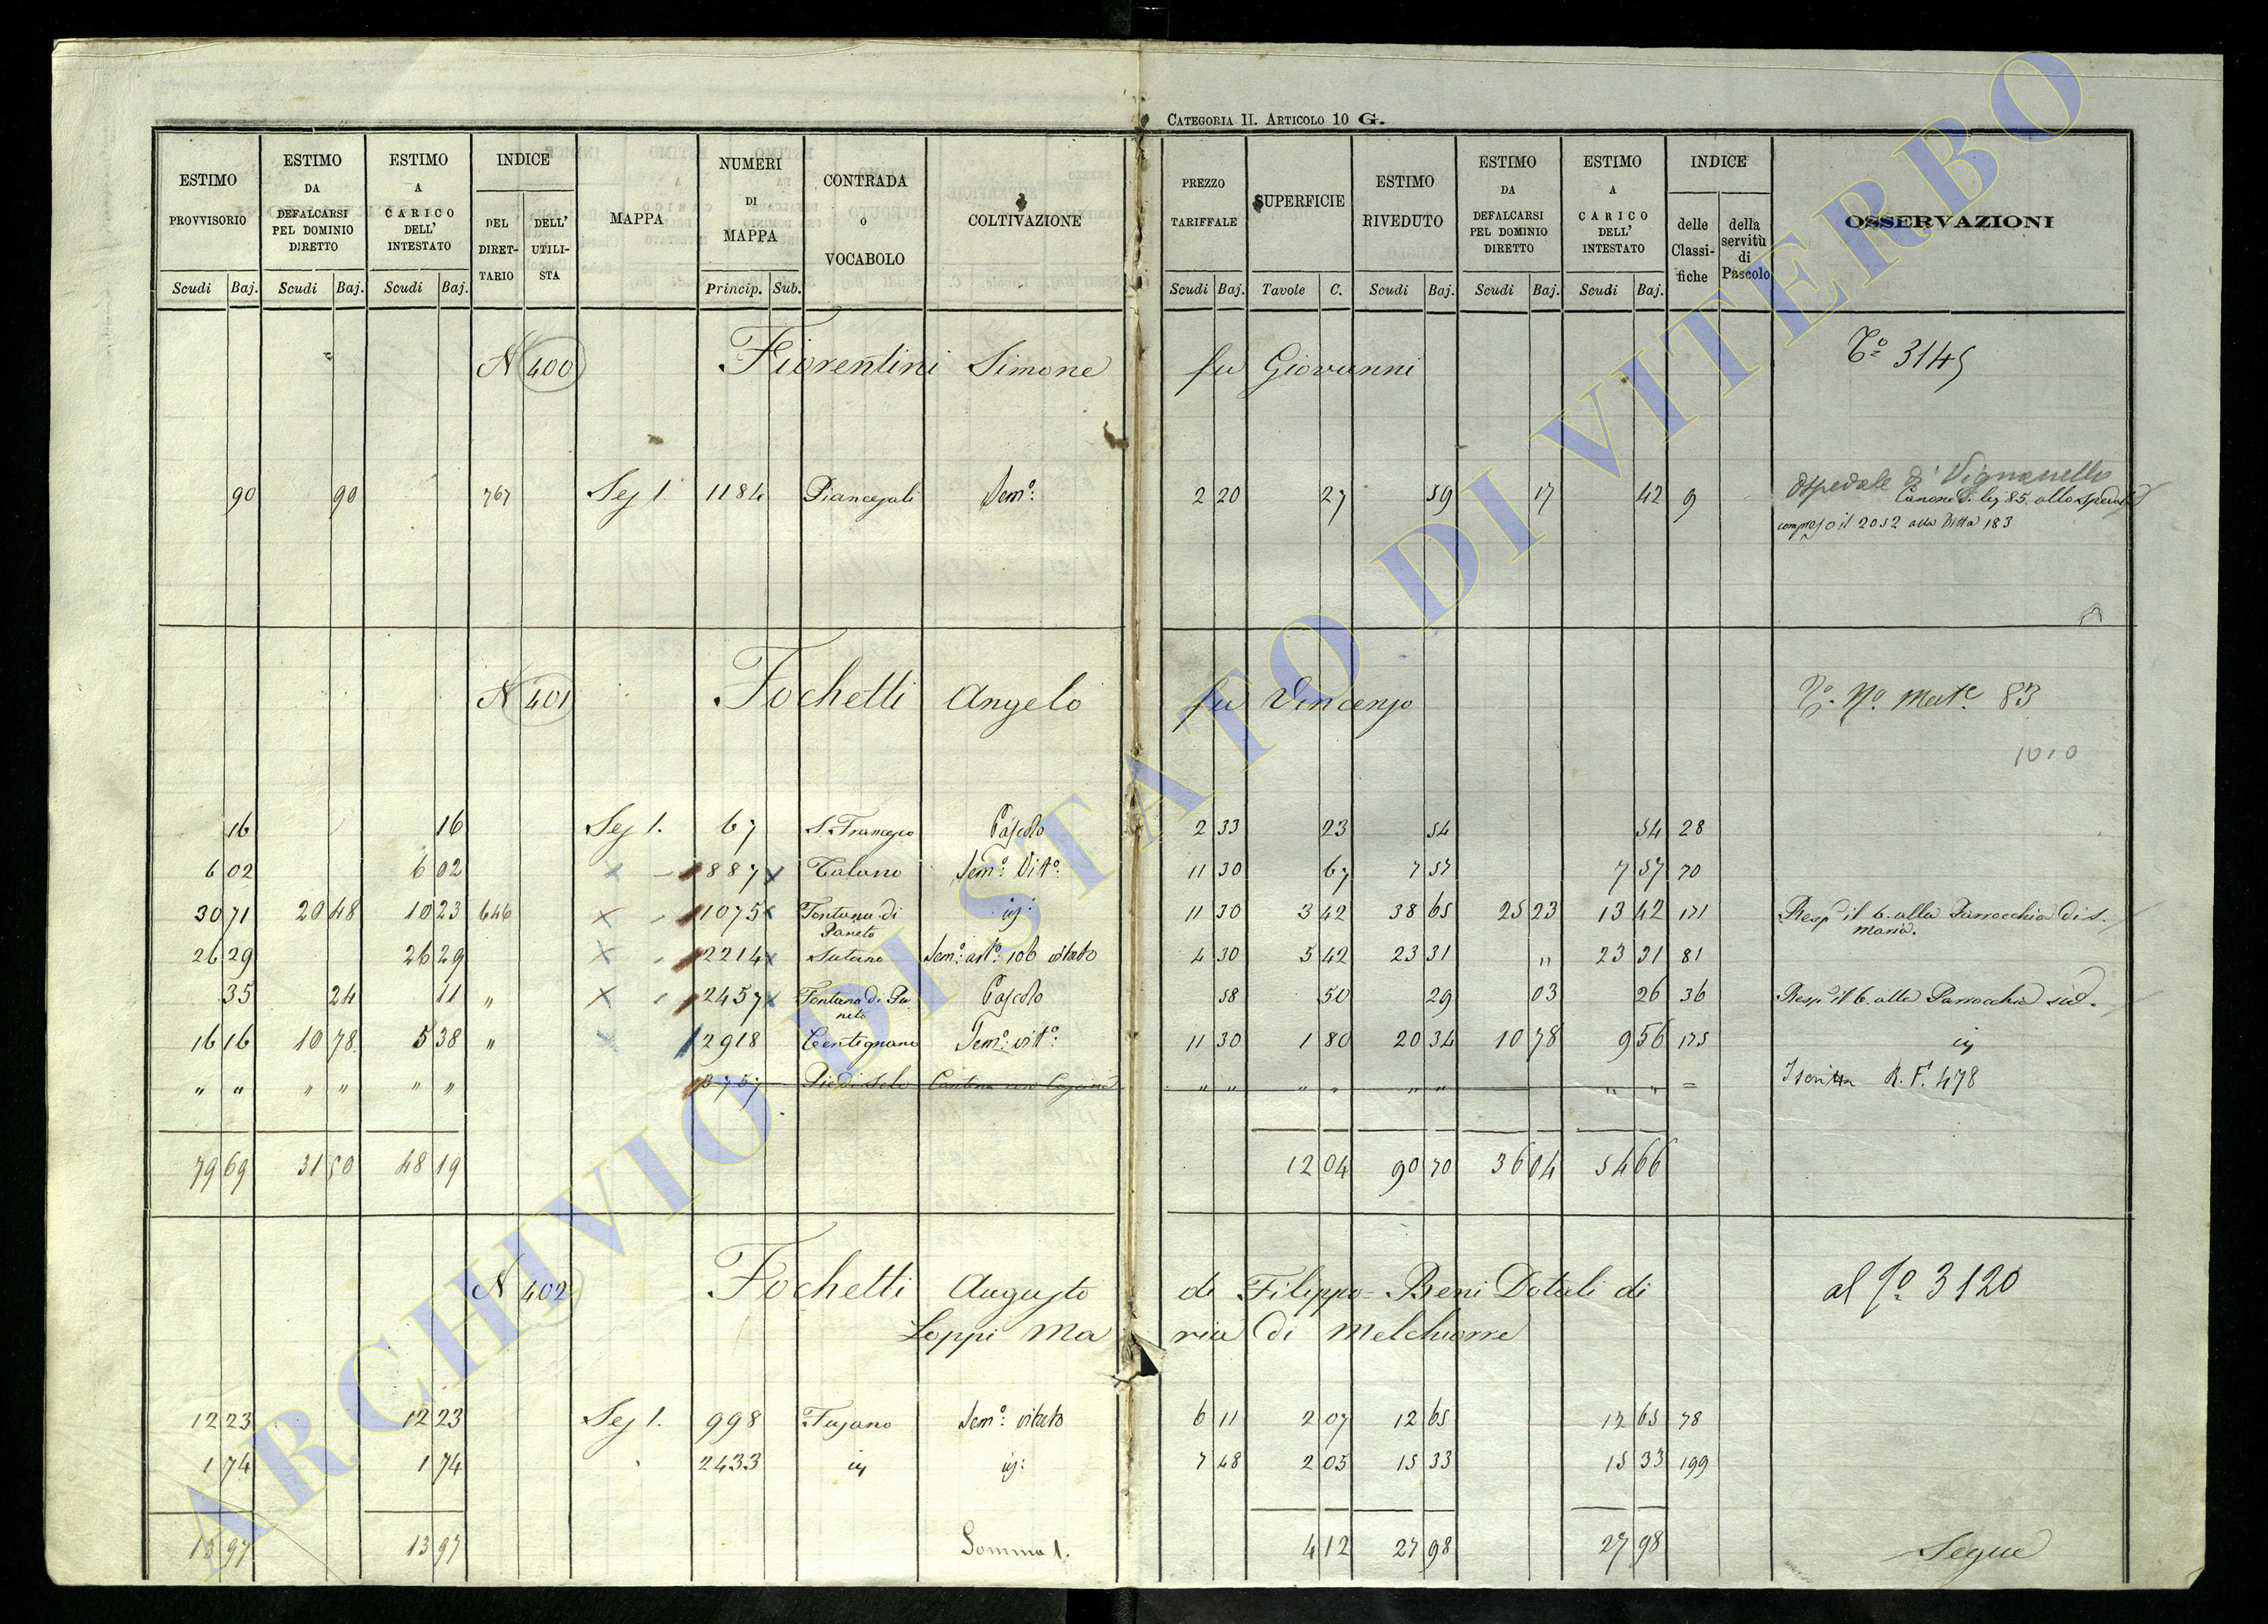 CATEGORIA II. ARTICOLO 10 G.
ESTIMO PROVVISORIO Scudi Baj.
ESTIMO DA DEFALCARSI PEL DOMINIO DIRETTO Scudi Baj.
ESTIMO A CARICO DELL' INTESTATO Scudi Baj.
INDICE DEL DIRETTARIO DELL' UTILISTA
MAPPA
NUMERI DI MAPPA Princip. Sub.
CONTRADA o VOCABOLO
COLTIVAZIONE
PREZZO TARIFFALE Scudi Baj.
SUPERFICIE Tavole C.
ESTIMO RIVEDUTO Scudi Baj.
ESTIMO DA DEFALCARSI PEL DOMINIO DIRETTO Scudi Baj.
ESTIMO A CARICO DELL' INTESTATO Scudi Baj.
INDICE delle Classifiche della servitù di Pascolo
OSSERVAZIONI
N 400 Fiorentini Simone fu Giovanni 3145
90 90 767 Sez 1 1184 Sem°: 2 20 27 59 17 42 9 Ospedale di Vignanello
compreso il 2052 alla Ditta 183
N 401 Fochetti Angelo fu Vincenzo 83
1010
16 16 Sez 1. 67 S. Francesco Pascolo 2 33 23 54 54 28
6 02 6 02 887 Talano Sem°: Vit°: 11 30 67 7 57 7 57 70
30 71 20 48 10 23 646 1075 Fontana di Paneto 11 30 3 42 38 65 25 23 13 42 171 Resp. il 6. alla Parrocchia di S. Maria.
26 29 26 29 2214 Sutano 4 30 5 42 23 31 " 23 31 81
35 24 11 " 2457 Fontana di Paneto Pascolo 58 50 29 03 26 36 Resp. il 6. alla Parrocchia sud.
16 16 10 78 5 38 " 2918 Centignano Sem°: vit°: 11 30 1 80 20 34 10 78 9 56 175
" " " " " " 3757 " " " " " " " " = R. F. 478
79 69 31 50 48 19 12 04 90 70 36 04 54 66
N 402 Fochetti Augusto di Filippo = Beni Dotali di al 3120
Loppi Maria di Melchiorre
12 23 12 23 Sez 1. 998 Fujano Sem°: vitato 6 11 2 07 12 65 12 65 78
1 74 1 74 2433 7 48 2 05 15 33 15 33 199
13 97 13 97 Somma 1. 4 12 27 98 27 98 Segue
ARCHIVIO DI STATO DI VITERBO